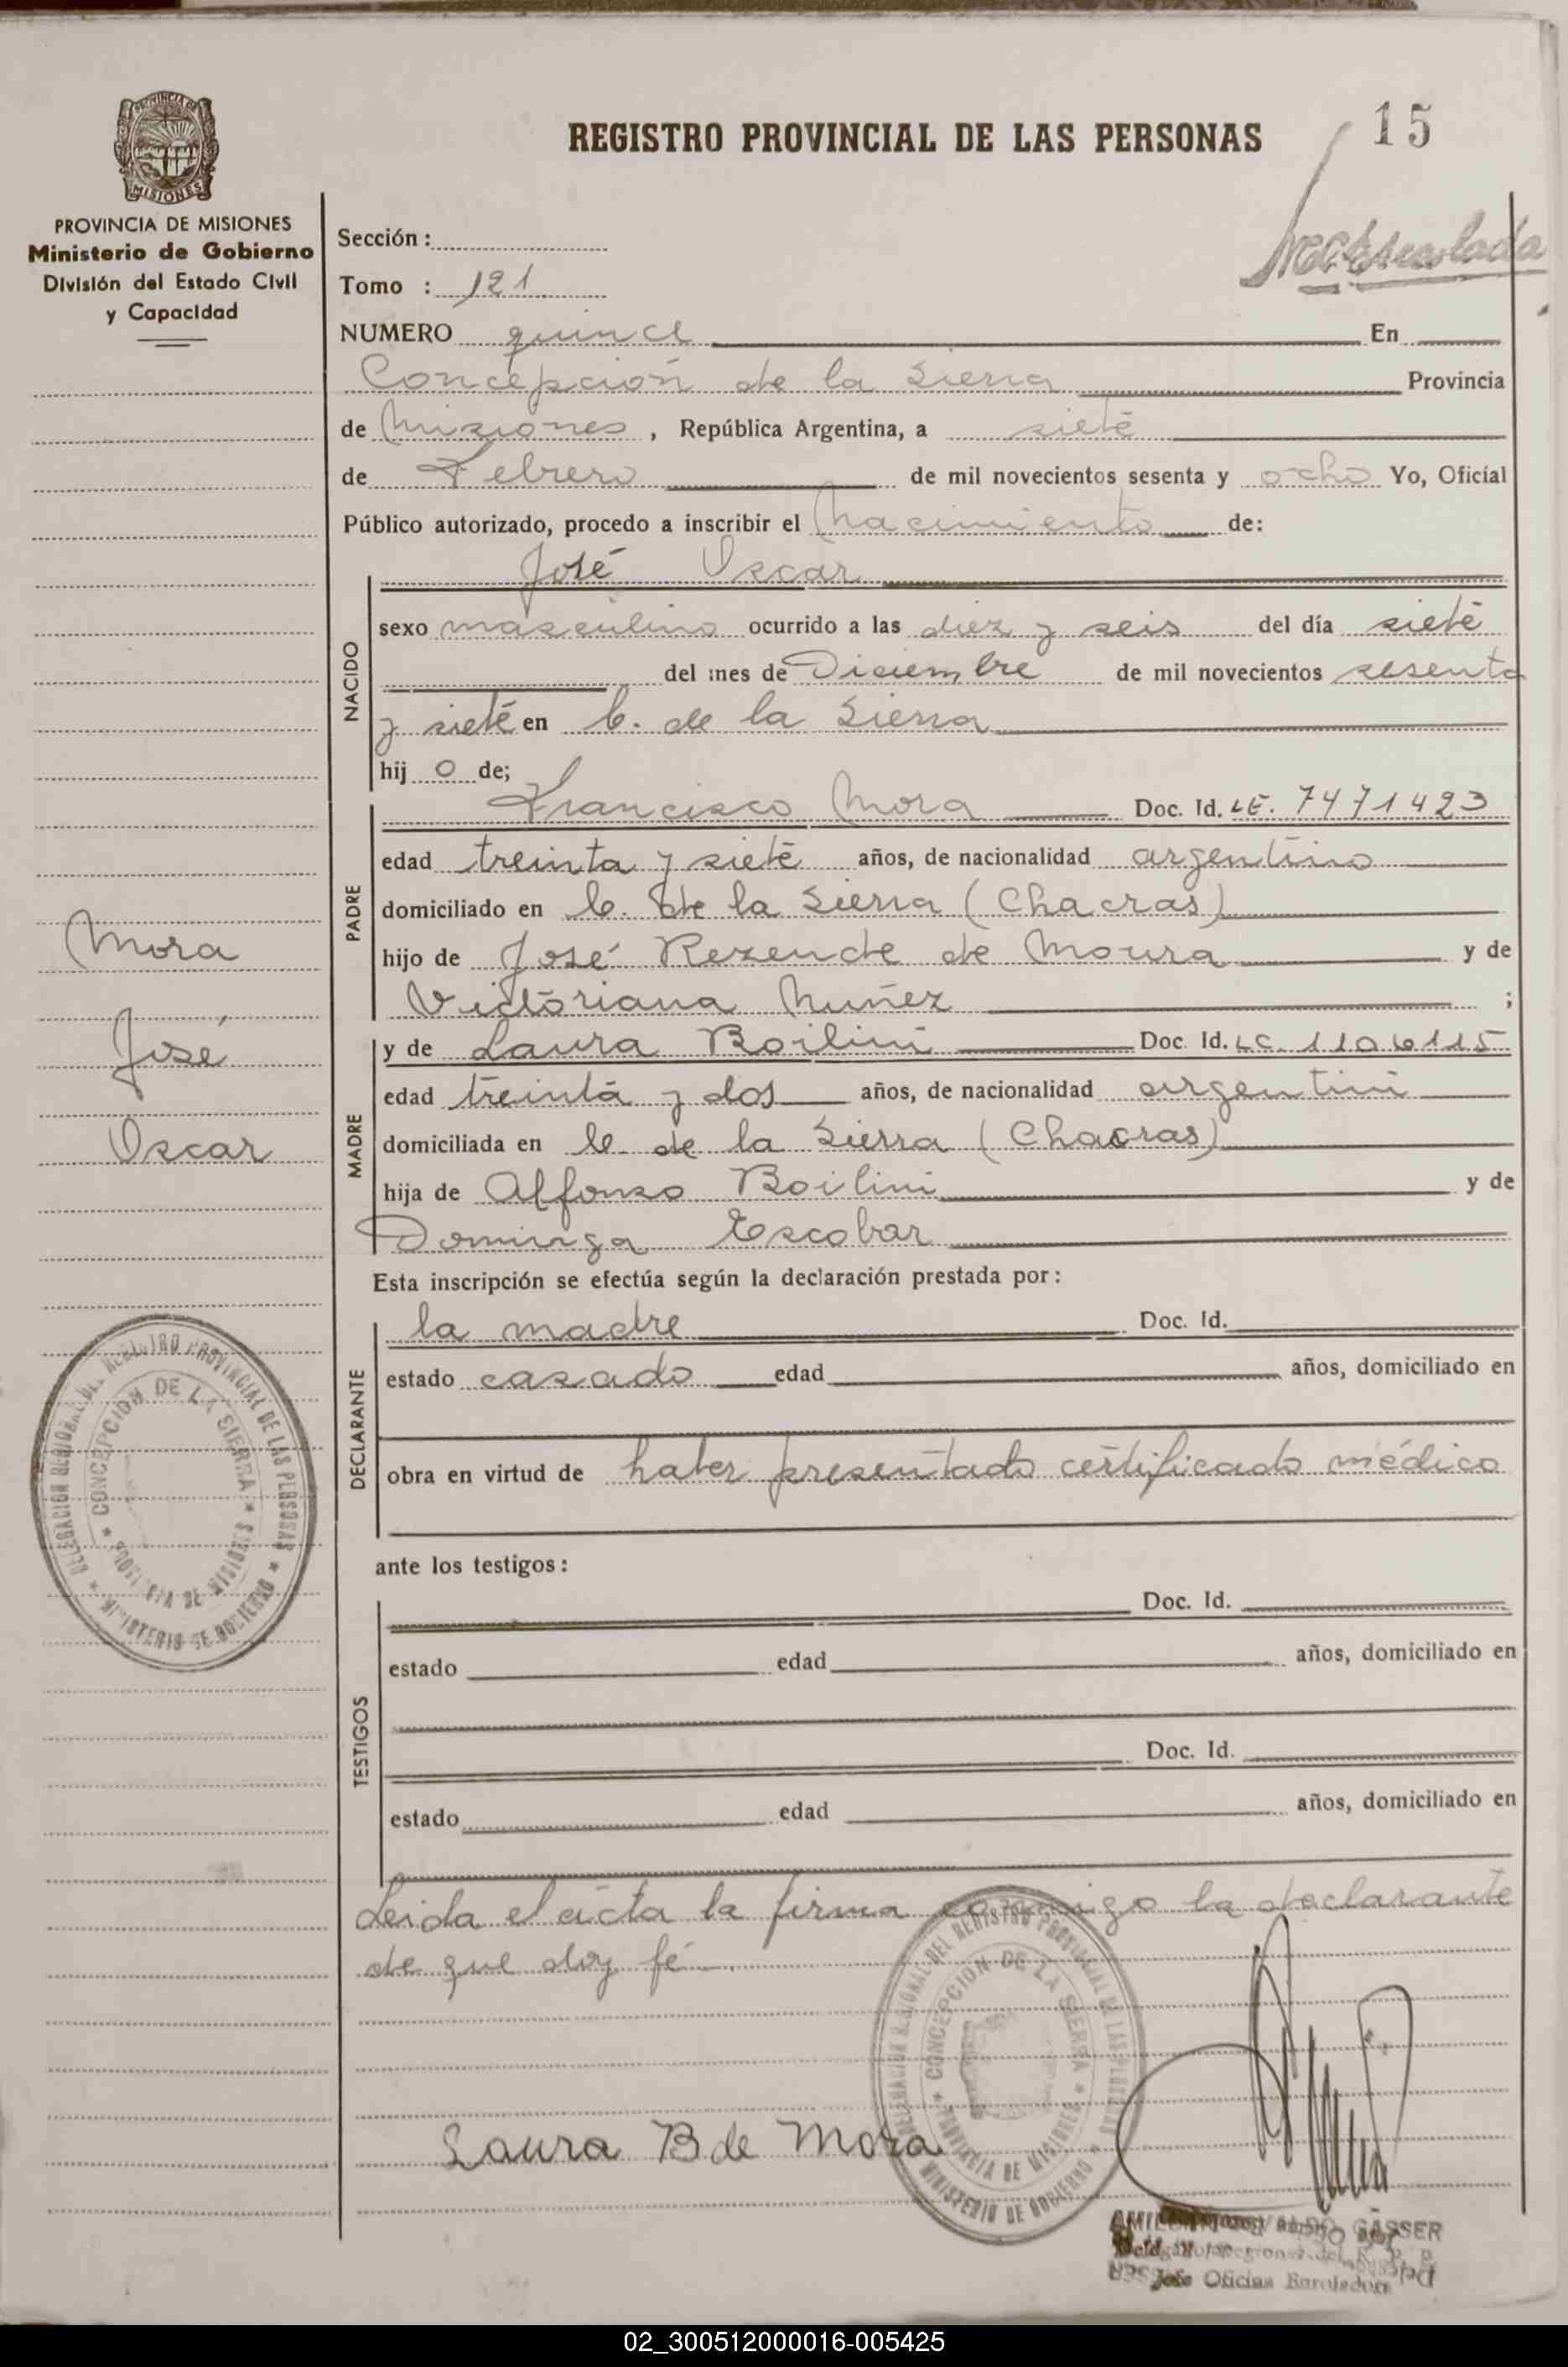 15
REGISTRO PROVINCIAL DE LAS PERSONAS
PROVINCIA DE MISIONES
Ministerio de Gobierno
División del Estado Civil
y Capacidad
Sección :
Tomo : 121
NUMERO quince En
Concepción de la Sierra Provincia
de Misiones , República Argentina, a siete
de Febrero de mil novecientos sesenta y ocho Yo, Oficial
Público autorizado, procedo a inscribir el Nacimiento de:
José Oscar
NACIDO
sexo masculino ocurrido a las diez y seis del día siete
del mes de Diciembre de mil novecientos sesenta
y siete en C. de la Sierra
hij o de;
PADRE
Francisco Mora Doc. Id. LE. 7471423
edad treinta y siete años, de nacionalidad argentino
domiciliado en C. de la Sierra (Chacras)
hijo de José Rezende de Moura y de
Victoriana Nuñez ;
MADRE
y de Laura Boilini Doc. Id. LC. 1106115
edad treinta y dos años, de nacionalidad argentina
domiciliada en C. de la Sierra (Chacras)
hija de Alfonso Boilini y de
Dominga Escobar
Mora
José
Oscar
Esta inscripción se efectúa según la declaración prestada por:
DECLARANTE
la madre Doc. Id.
estado casado edad años, domiciliado en
obra en virtud de haber presentado certificado médico
ante los testigos:
TESTIGOS
Doc. Id.
estado edad años, domiciliado en
Doc. Id.
estado edad años, domiciliado en
Leida el acta la firma conmigo la declarante
de que doy fé
DELEGACION REGIONAL DEL REGISTRO PROVINCIAL DE LAS PERSONAS * MINISTERIO DE GOBIERNO *
CONCEPCION DE LA SIERRA * PROVINCIA DE MISIONES *
DELEGACION REGIONAL DEL REGISTRO PROVINCIAL DE LAS PERSONAS * MINISTERIO DE GOBIERNO *
CONCEPCION DE LA SIERRA * PROVINCIA DE MISIONES *
Laura B de Mora
GASSER
Jefe Oficina
02_300512000016-005425